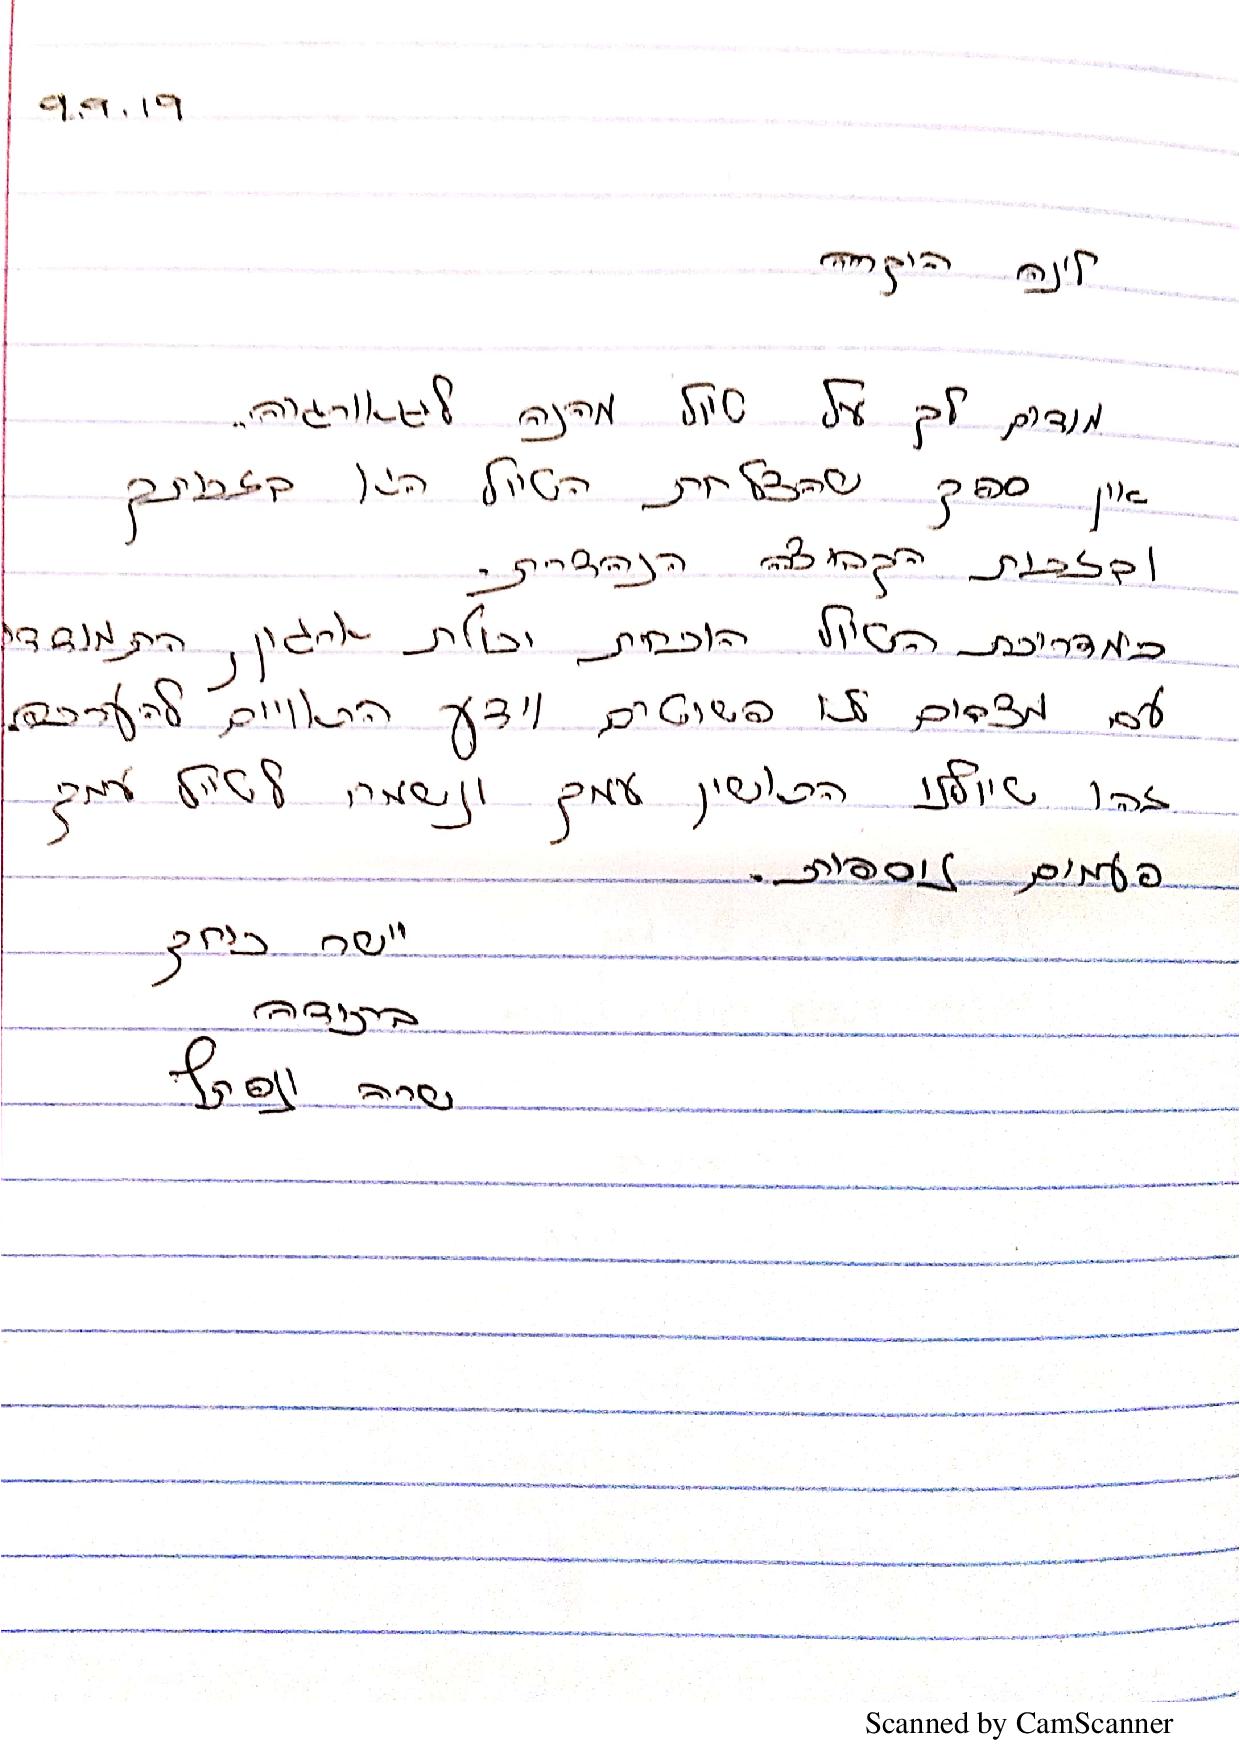 9.9.19
לינה היקרה
מודים לך על טיול מהנה לגאורגיה..
אין ספק שהצלחת הטיול היא בזכותך
ובזכות הקבוצה הנהדרת.
כמדריכת הטיול הוכחת יכולת ארגון, התמודדות
עם מצבים לא פשוטים וידע הראויים להערכה.
זהו טיולנו החמישי עמך ונשמח לטייל עמך
פעמים נוספות.
יישר כוחך
בתודה
שרה
Scanned by CamScanner